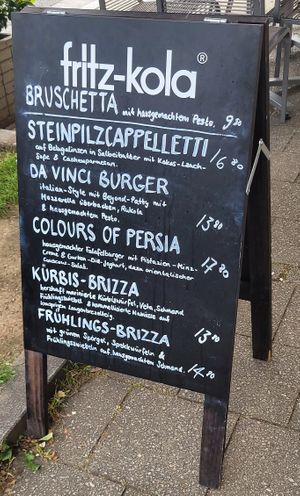 fritz-kola®
BRUSCHETTA mit hausgemachtem Pesto. 9.50
STEINPILZCAPPELLETTI 16.80
auf Belugalinsen in Salbeibutter mit Kokos-Lauch-
& Cashewparmesan.
DA VINCI BURGER
italian-Style mit Beyond-Patty mit
Mozzarella überbacken, Rukola
& hausgemachtem Pesto. 13.80
COLOURS OF PERSIA
hausgemachter Falafelburger mit Pistazien-Minz-
Creme & Gurken-Dill-Joghurt, dazu orientalischer
Couscous-Salat. 17.80
KÜRBIS-BRIZZA
herzhaft marinierte Kürbiswürfel, Schmand
Frühlingszwiebel & karamellisierte Walnüsse auf
Langenbrezelteig. 13.90
FRÜHLINGS-BRIZZA
mit grünem Spargel, Speckwürfeln &
Frühlingszwiebeln auf hausgemachtem Schmand. 14.90